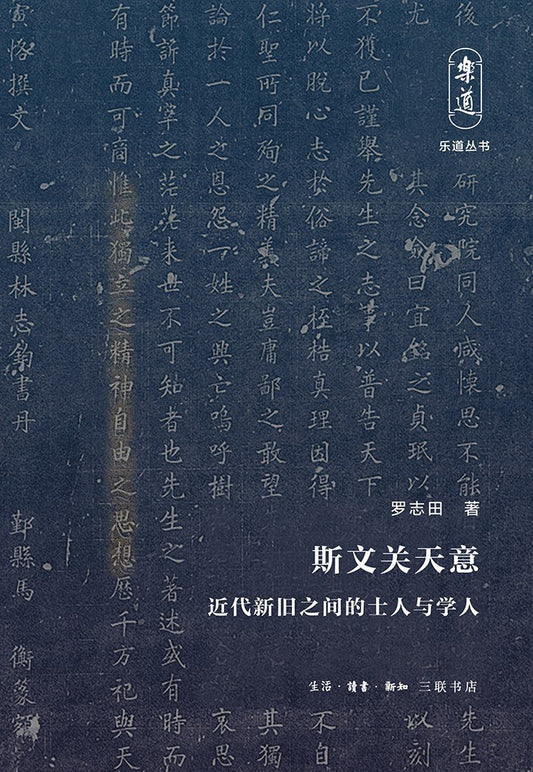 樂道
乐道丛书
後 研究院同人感懷思不能 先生
尤 其念僉曰宜銘之貞珉以 以刻
不獲已謹舉先生之志事以普告天下
將以脫心志於俗諦之桎梏真理因得 不自
仁聖所同殉之精義夫豈庸鄙之敢望 其獨
論於一人之恩怨一姓之興亡嗚呼樹 哀思
節訴真宰之茫茫来世不可知者也先生之著述或有時而
有時而可商惟此獨立之精神自由之思想歷千万祀與天
寅恪撰文 閩縣林志鈞書丹 鄞縣馬衡篆額
罗志田 著
斯文关天意
近代新旧之间的士人与学人
生活·讀書·新知 三联书店